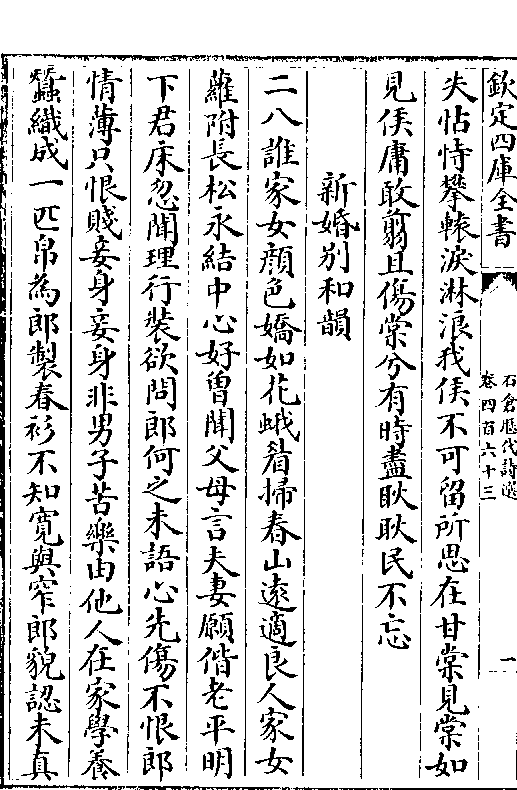 欽定四庫全書
石倉歷代詩選
卷四百六十三
一
失怙恃攀轅淚淋浪我侯不可留所思在甘棠見棠如
見侯庸敢翦且傷棠兮有時盡耿耿民不忘
新婚别和韻
二八誰家女顔色嬌如花蛾眉掃春山遠適良人家女
蘿附長松永結中心好曽聞父母言夫妻願偕老平明
下君床忽聞理行裝欲問郎何之未語心先傷不恨郎
情薄只恨賤妾身妾身非男子苦樂由他人在家學養
蠶織成一匹帛為郎製春衫不知寛與窄郎貌認未真